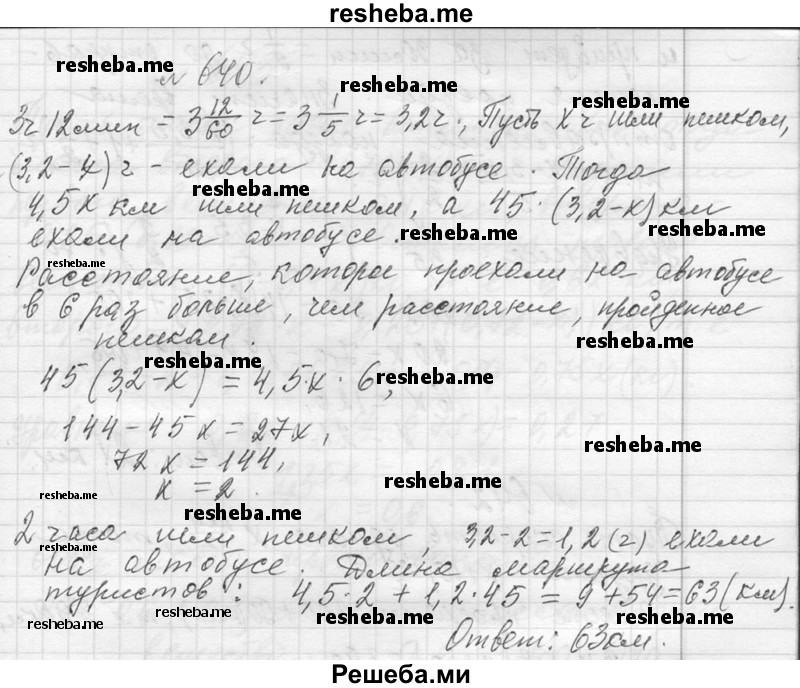 resheba.me
№ 640.
resheba.me resheba.me
3ч 12мин = 3 12/60 ч = 3 1/5 ч = 3,2ч., Пусть х ч шли пешком,
(3,2 - х) ч - ехали на автобусе. Тогда
resheba.me resheba.me
4,5х км шли пешком, а 45 · (3,2-х) км
ехали на автобусе.
resheba.me
resheba.me
Расстояние, которое проехали на автобусе
в 6 раз больше, чем расстояние, пройденное
resheba.me
пешком.
resheba.me
resheba.me
45 (3,2-х) = 4,5·х · 6,
resheba.me
144-45х = 27х,
resheba.me
72х = 144,
resheba.me
х = 2.
resheba.me
resheba.me
2 часа шли пешком, 3,2-2=1,2 (ч) ехали
resheba.me
на автобусе. Длина маршрута
туристов: 4,5·2 + 1,2·45 = 9+54=63 (км).
resheba.me resheba.me resheba.me
Ответ: 63км.
Решеба.ми